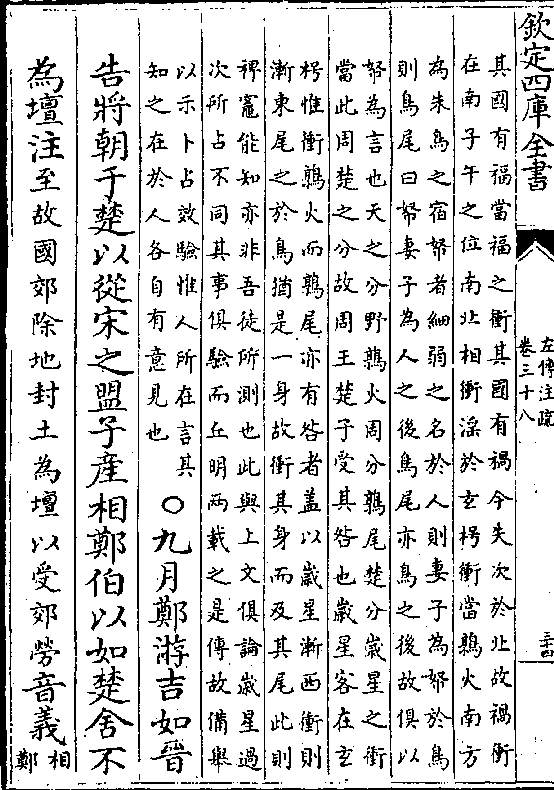 欽定四庫全書
左傳注疏
卷三十八
三十四
其國有福當福之衝其國有禍今失次於北故禍衝
在南子午之位南北相衝淫於玄枵衝當鶉火南方
為朱鳥之宿帑者細弱之名於人則妻子為帑於鳥
則鳥尾曰帑妻子為人之後鳥尾亦鳥之後故俱以
帑為言也天之分野鶉火周分鶉尾楚分歲星之衝
當此周楚之分故周王楚子受其咎也歲星客在玄
枵惟衝鶉火而鶉尾亦有咎者蓋以歲星漸西衝則
漸東尾之於鳥猶是一身故衝其身而及其尾此則
裨竈能知亦非吾徒所測也此與上文俱論歲星過
次所占不同其事俱驗而丘明兩載之是傳故備舉
以示卜占效驗惟人所在言其
知之在於人各自有意見也
○九月鄭游吉如晉
告將朝于楚以從宋之盟子産相鄭伯以如楚舍不
為壇注至故國郊除地封土為壇以受郊勞音義
相
鄭